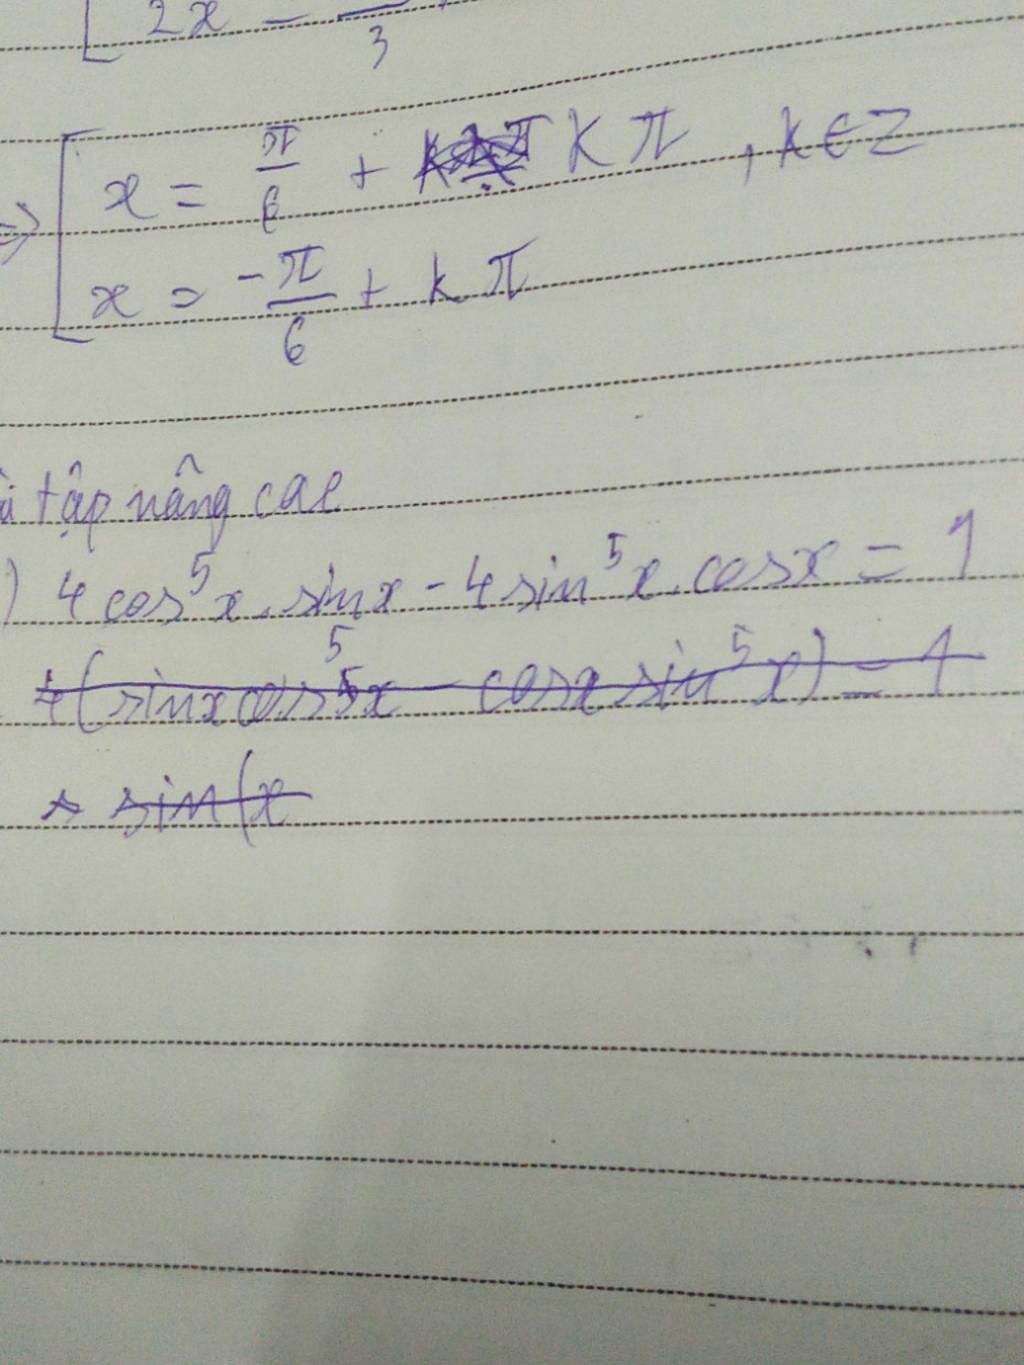 [ 2x - — 3
=> [ x = π/6 + kπ , k ∈ Z
x = -π/6 + kπ
tập nâng cao
) 4cos⁵x.sinx - 4sin⁵x.cosx = 1
4(sinxcos⁵x - cosxsin⁵x) = 1
sin(x